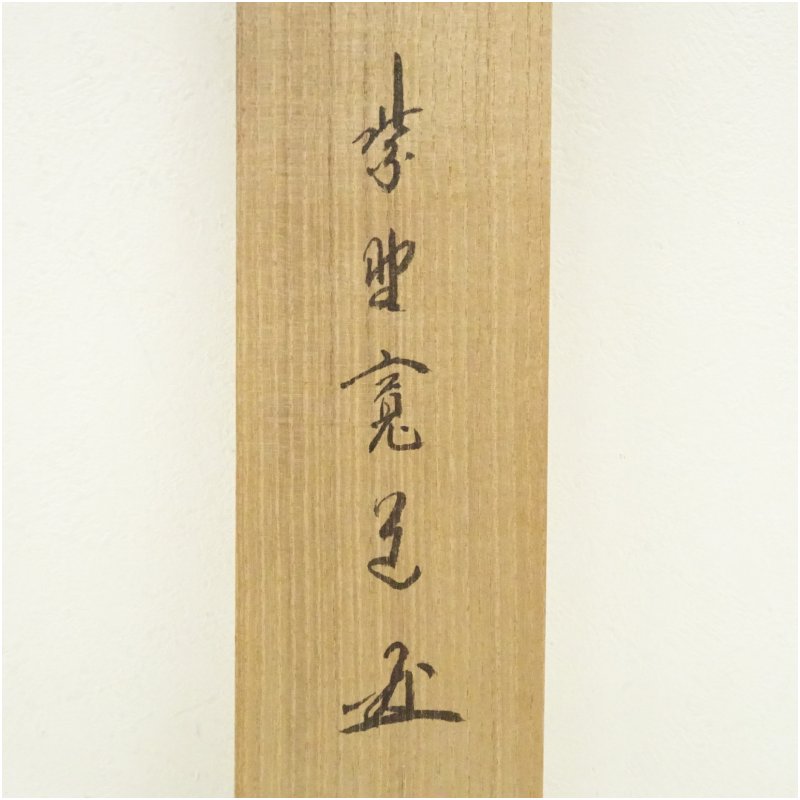 紫野寛道書